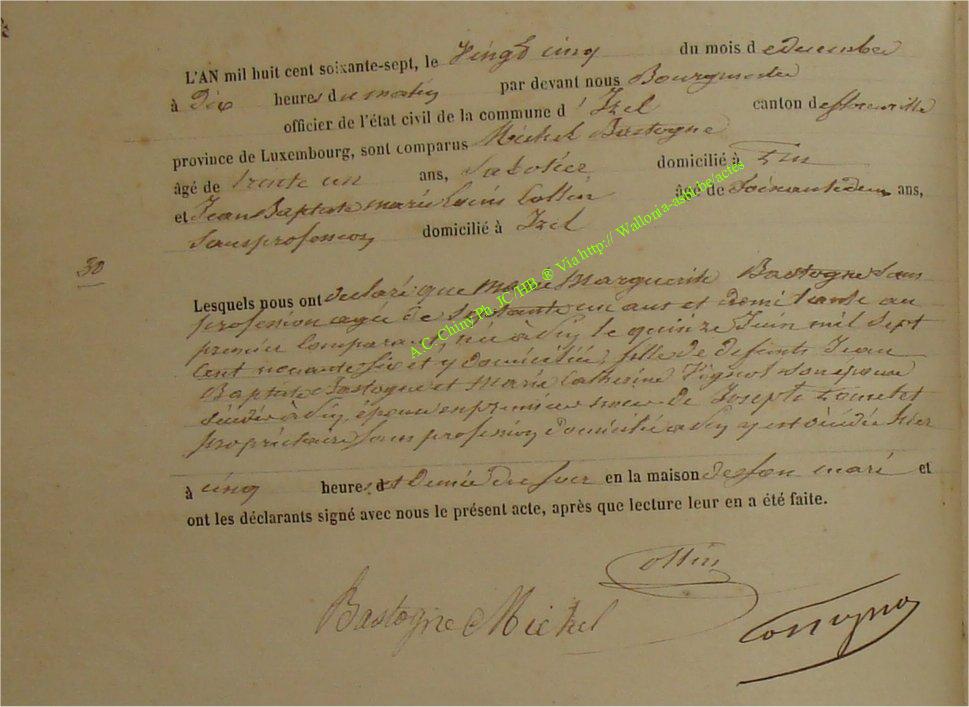 L'AN mil huit cent soixante-sept, le Vingt cinq du mois d e décembre
à Dix heures du matin par devant nous Bourgmestre
officier de l'état civil de la commune d' Izel canton de florenville
province de Luxembourg, sont comparus Michel Bastogne
âgé de trente un ans, Sabotier domicilié à
et Jean Baptiste marie Louis Collin âgé de Soixante deux ans,
Sans profession domicilié à Izel
30
Lesquels nous ont déclaré que Marie Marguerite Bastogne Sans
profession agée de Soixante un ans et demi tante au
premier Comparant, née à le quinze Juin mil Sept
Cent nonante Six et y domiciliée, fille de defunts Jean
Baptiste Bastogne et Marie Catherine Son épouse
décédés à épouse en premières noces de Joseph
propriétaire Sans profession domicilié à y est décédée hier
à cinq heures et demie du Soir en la maison de son mari et
ont les déclarants signé avec nous le présent acte, après que lecture leur en a été faite.
Collin
Bastogne Michel
A.C. Chiny Ph. JC /HB ® Via http:// Wallonia-asbl.be/actes